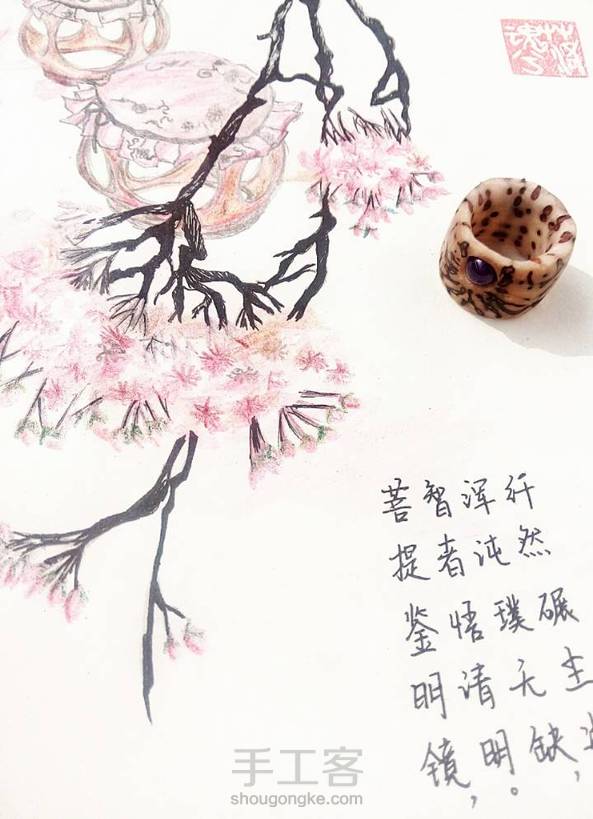 菩提鉴明镜,
智者悟清明。
浑沌璞天缺,
纤然碾生
手工客
shougongke.com